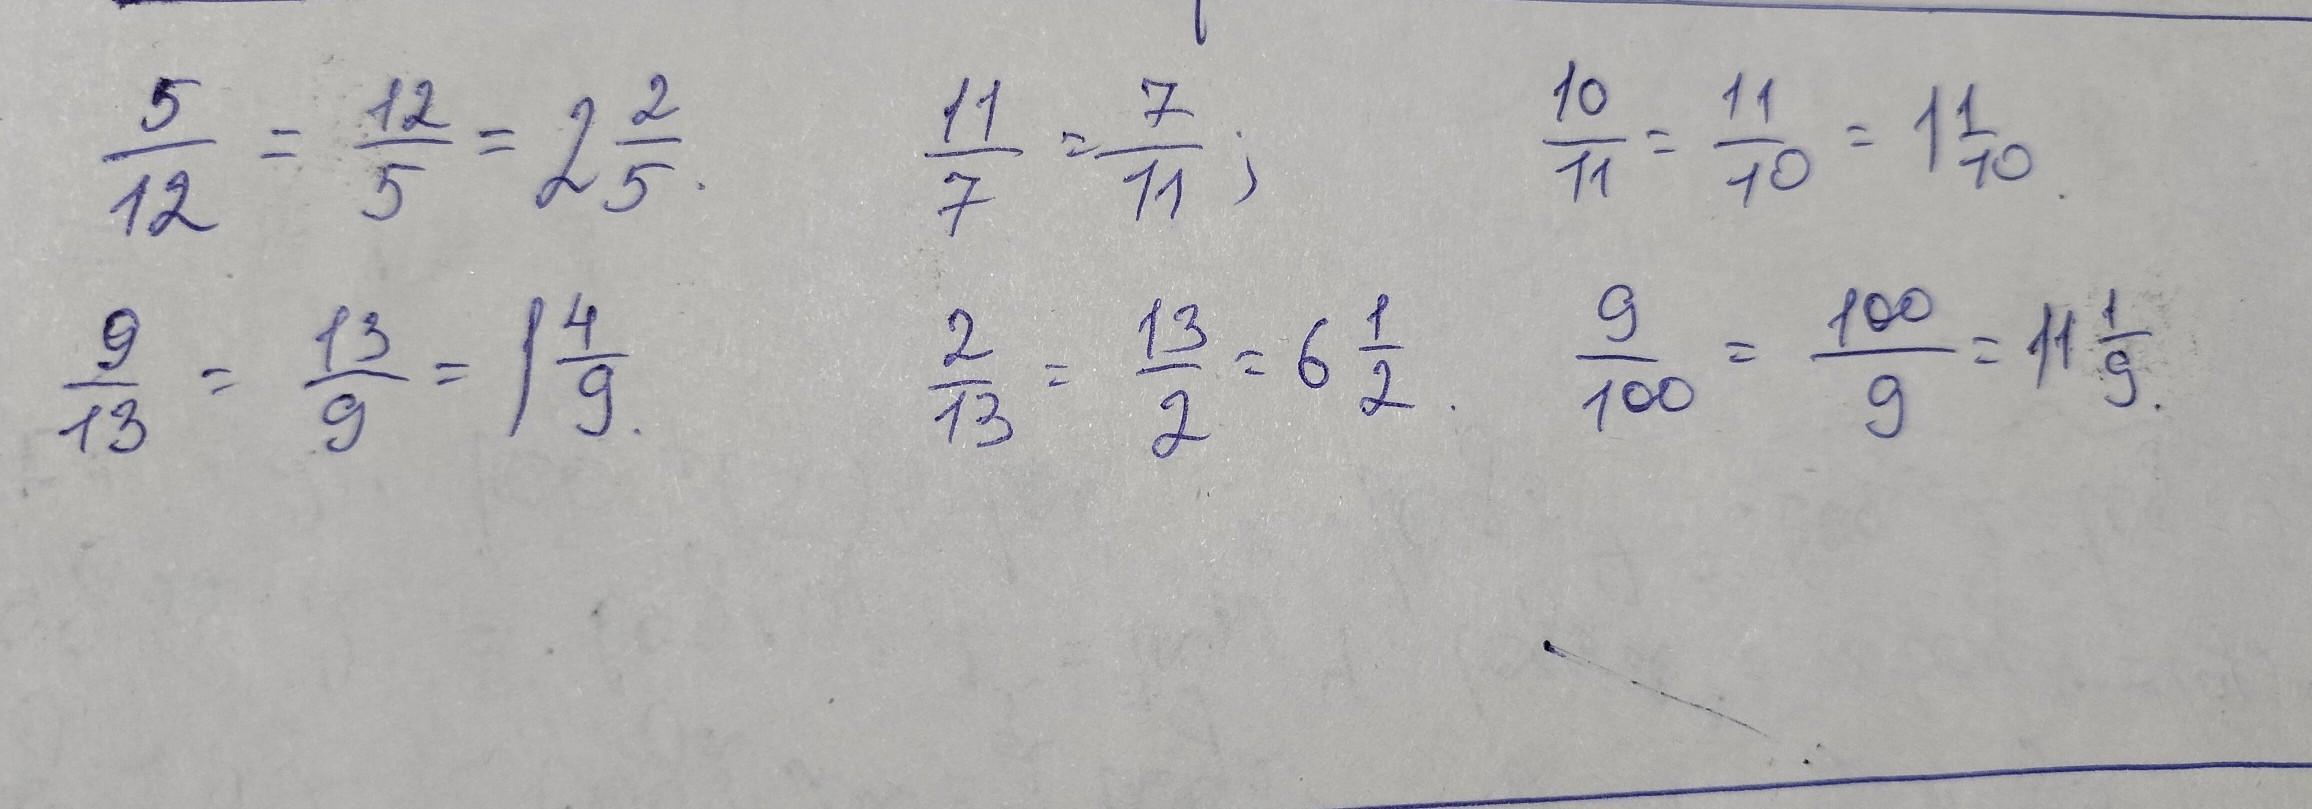 5/12 = 12/5 = 2 2/5. 11/7 = 7/11; 10/11 = 11/10 = 1 1/10.
9/13 = 13/9 = 1 4/9. 2/13 = 13/2 = 6 1/2. 9/100 = 100/9 = 11 1/9.